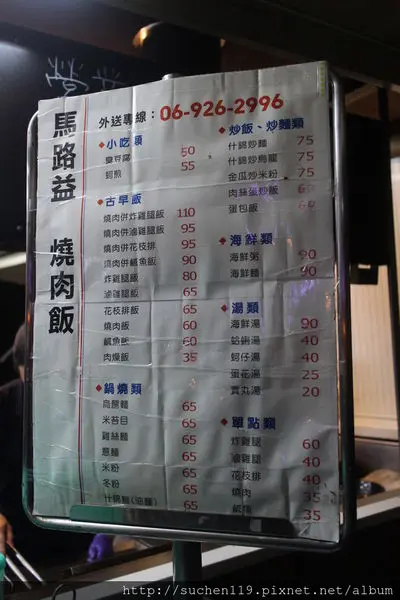 馬路益 燒肉飯
外送專線：06-926-2996
◆小吃類
臭豆腐 50
蚵煎 55
◆古早飯
燒肉併炸雞腿飯 110
燒肉併滷雞腿飯 95
燒肉併花枝排 95
燒肉併鹹魚飯 90
炸雞腿飯 80
滷雞腿飯 65
花枝排飯 65
燒肉飯 60
鹹魚飯 60
肉燥飯 35
◆鍋燒類
烏龍麵 65
米苔目 65
雞絲麵 65
意麵 65
米粉 65
冬粉 65
什錦麵(油麵) 65
◆炒飯、炒麵類
什錦炒麵 75
什錦炒烏龍 75
金瓜炒米粉 75
肉絲蛋炒飯 60
蛋包飯
◆海鮮類
海鮮粥 90
海鮮麵 90
◆湯類
海鮮湯 90
蛤蜊湯 40
蚵仔湯 40
蛋花湯 25
貢丸湯 20
◆單點類
炸雞腿 60
滷雞腿 40
花枝排 40
燒肉 35
鹹魚 35
http://suchen119.pixnet.net/album